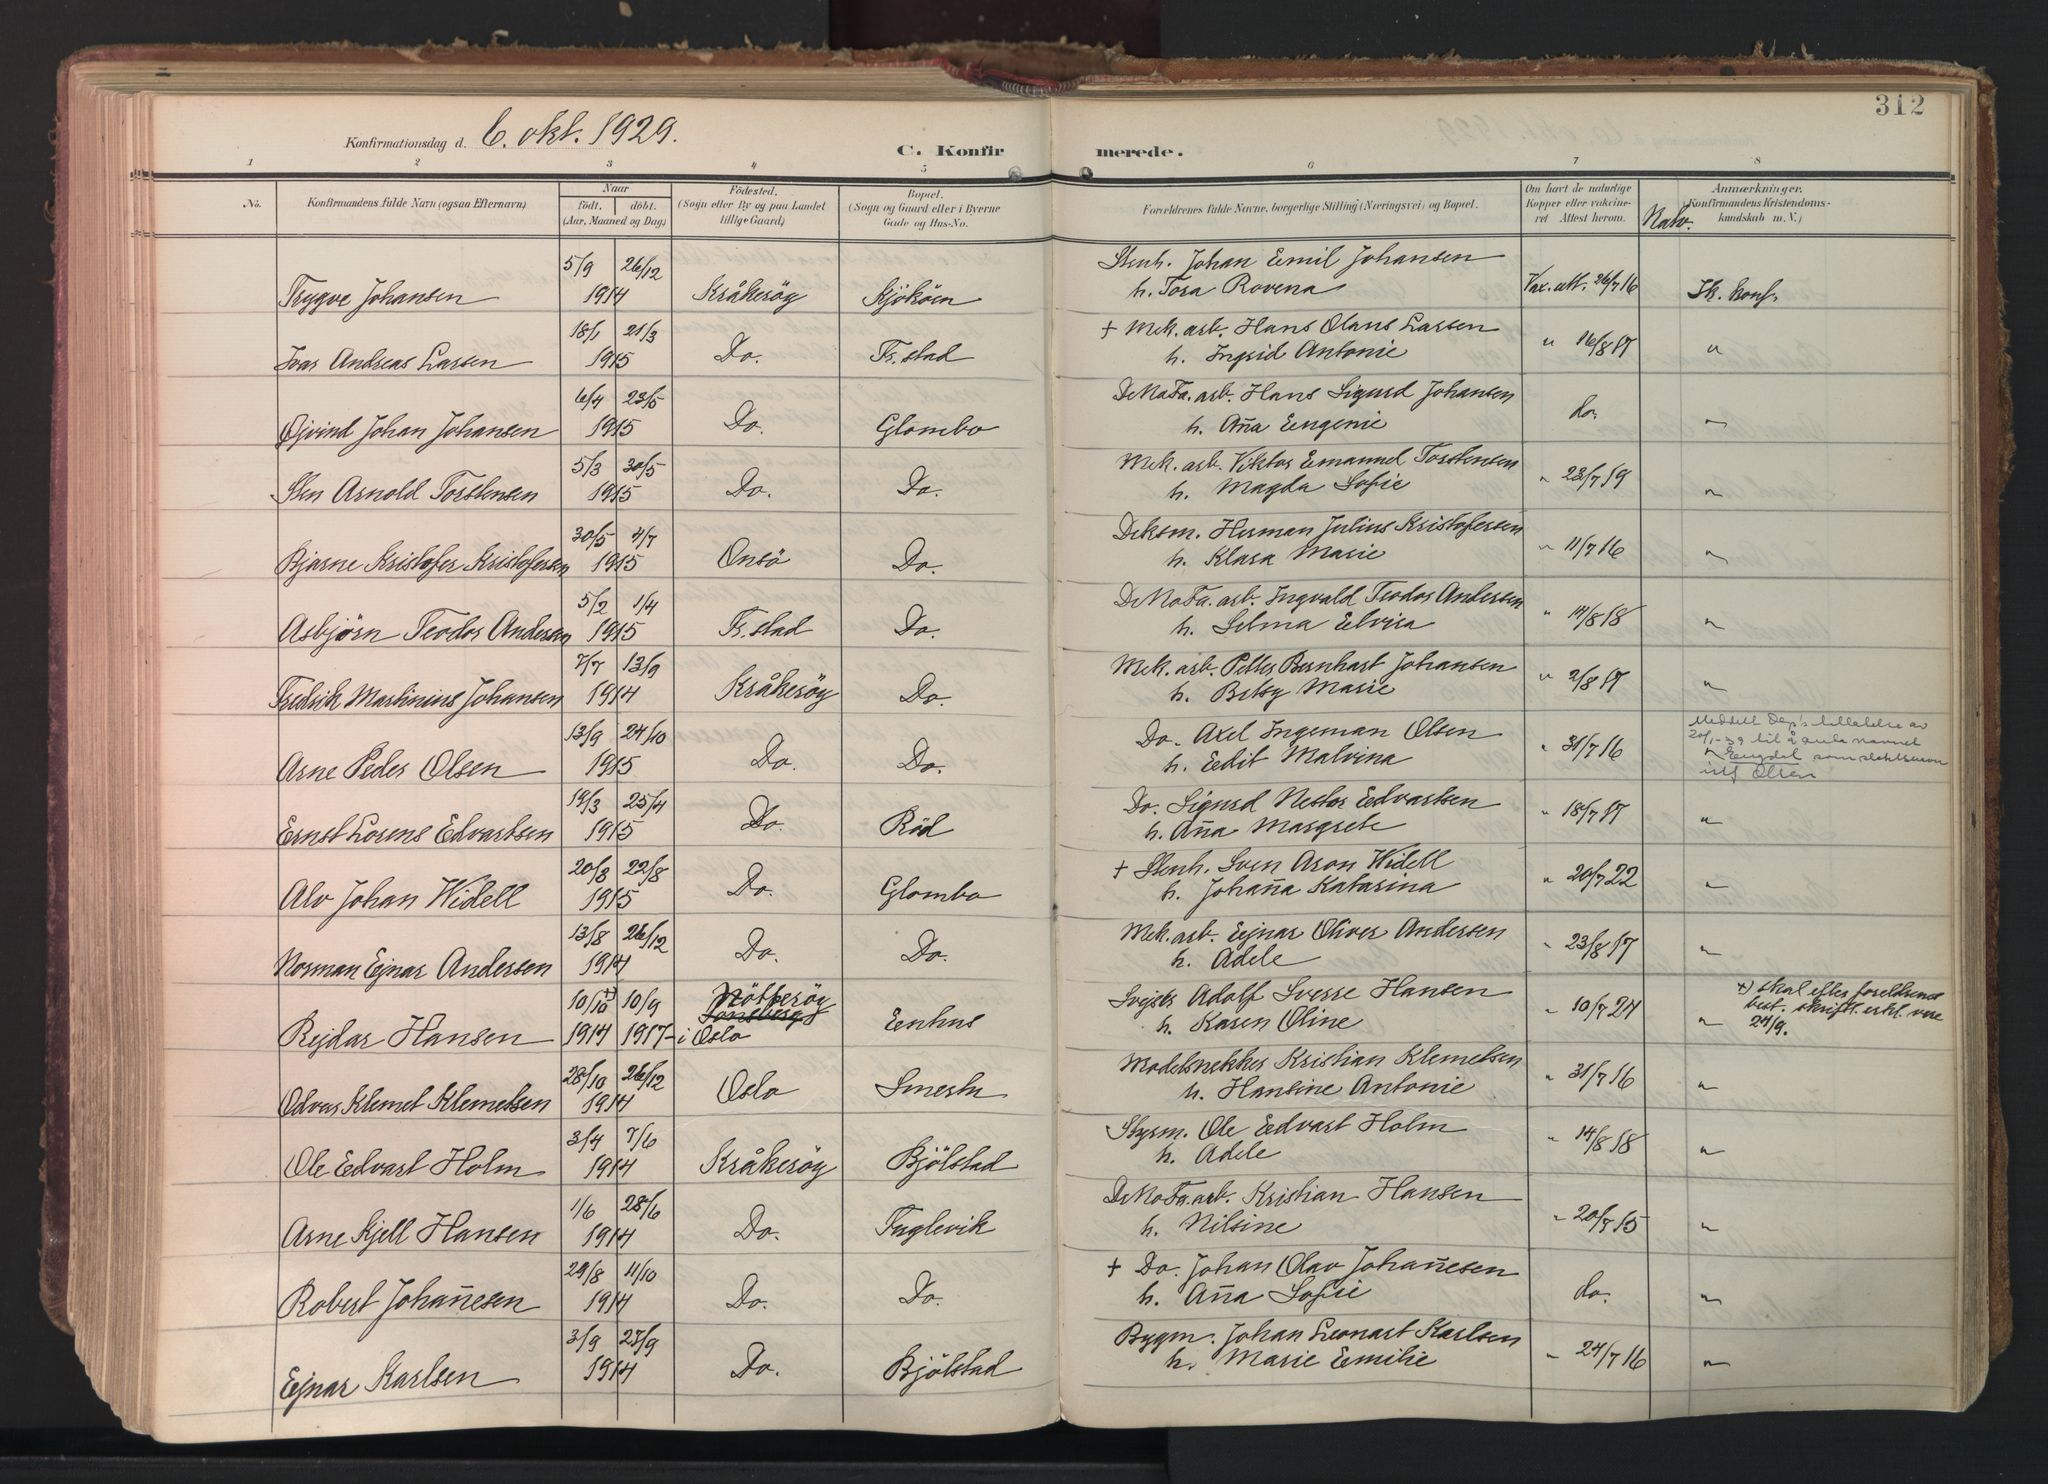 312
Konfirmationsdag d. 6. okt. 1929.
C. Konfirmerede.
1 2 3 4 5 6 7 8
No.
Konfirmandens fulde Navn (ogsaa Efternavn)
Naar
født. døbt.
(Aar, Maaned og Dag)
Födested.
(Sogn eller By og paa Landet
tillige Gaard)
Bopæl.
(Sogn og Gaard eller i Byerne
Gade og Hus-No.
Forældrenes fulde Navne, borgerlige Stilling (Næringsvei) og Bopæl.
Om havt de naturlige
Kopper eller vakcine-
ret Attest herom.
Anmærkninger.
(Konfirmandens Kristendoms-
kundskab m. V.)
5/9 26/12 Stenh. Johan Emil Johansen
Trygve Johansen 1914 Kråkeröy Kjøkøen h. Tora Rovena Vax. att. 26/7 16 Ik. konf.
18/1 21/3 + Mek. arb. Hans Olaus Larsen
Ivar Andreas Larsen 1915 Do. Fr.stad h. Ingrid Antonie " 16/8 17 "
6/4 23/5 DeNoFa. arb. Hans Sigurd Johansen
Øjvind Johan Johansen 1915 Do. Glombo h. Aña Eugenie do. "
5/3 30/5 Mek. arb. Viktor Emanuel Torstensen
Sten Arnold Torstensen 1915 Do. Do. h. Magda Sofie " 23/7 19 "
30/5 4/7 Deksm. Herman Julius Kristofersen
Bjarne Kristofer Kristofersen 1915 Onsö Do. h. Klara Marie " 11/7 16 "
5/2 1/4 DeNoFa. arb. Ingvald Teodor Andersen
Asbjørn Teodor Andersen 1915 Fr.stad Do. h. Selma Elvira " 14/8 18 "
7/7 13/9 Mek. arb. Petter Bernhart Johansen
Fredrik Martinius Johansen 1914 Kråkeröy Do. h. Betsy Marie " 2/8 17 "
13/9 24/10 Do. Axel Ingeman Olsen
Arne Peder Olsen 1915 Do. Do. h. Edit Malvina " 31/7 16 "
Meddelt Dep's tillatelse av
20/1-39 til å anta navnet
Engdal som slektsnavn
istf Olsen
19/3 25/4 Do. Sigurd Nestor Edvartsen
Ernst Lorens Edvartsen 1915 Do. Röd h. Aña Margrete " 18/7 17 "
20/3 22/8 + Stenh. Sven Aron Widell
Alv Johan Widell 1915 Do. Glombo h. Johaña Katarina " 20/7 22 "
13/8 26/12 Mek. arb. Ejnar Oliver Andersen
Norman Ejnar Andersen 1914 Do. Do. h. Adele " 23/8 17 "
10/10 +) 10/9 Nötteröy Tønsberg Svejser Adolf Sverre Hansen
Rejdar Hansen 1914 1917- i Oslo Enhus h. Karen Oline " 10/7 24 "
+) skal efter foreldrenes
best. skriftl. erkl. vere
24/9.
28/10 26/12 Modelsnekker Kristian Klemetsen
Odvar Klemet Klemetsen 1914 Oslo Smertu h. Hansine Antonie " 31/7 16 "
3/4 7/6 Styrm. Ole Edvart Holm
Ole Edvart Holm 1914 Kråkeröy Bjölstad h. Adele " 14/8 18 "
1/6 28/6 DeNoFa. arb. Kristian Hansen
Arne Kjell Hansen 1914 Do. Fuglevik h. Nilsine " 20/7 15 "
29/8 11/10 + Do. Johan Olav Johañesen
Robert Johañesen 1914 Do. Do. h. Aña Sofie do. "
3/9 27/9 Bygm. Johan Leonart Karlsen
Ejnar Karlsen 1914 Do. Bjölstad h. Marie Emilie " 24/7 16 "